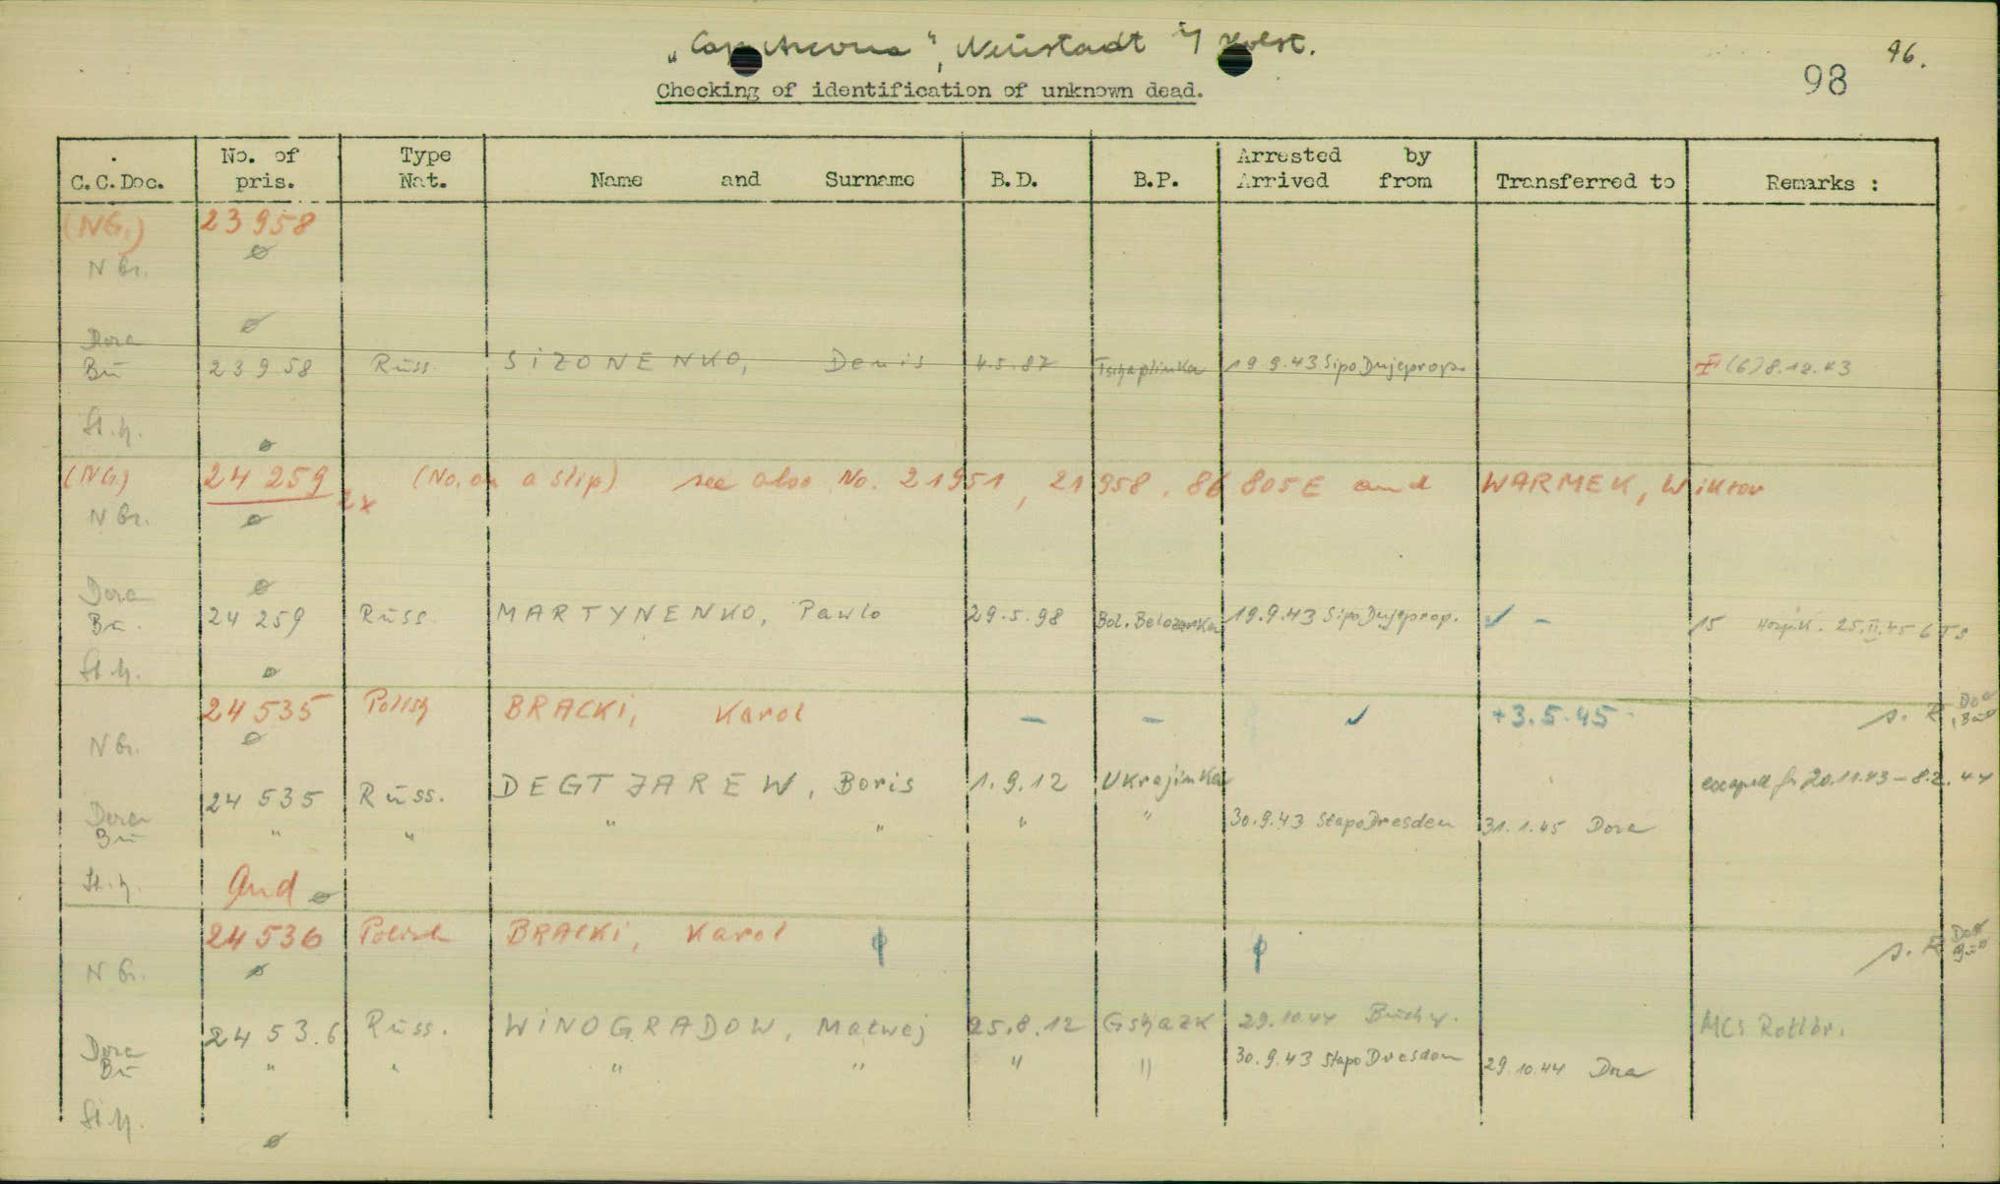 „Cap Arcona", Neustadt i/Holst.
96.
98
Checking of identification of unknown dead.
C.C.Doc. No. of pris. Type Nat. Name and Surname B.D. B.P. Arrested by Arrived from Transferred to Remarks :
(NG.) 23958
N Br. ø
Dora ø
Bu 23958 Russ. SIZONENKO, Denis 4.5.87 Tschaplinka 19.9.43 Sipo Dnjeprop. (6) 8.12.43
St.h. ø
(NG) 24 259 2x (No. on a slip) see also No. 21951, 21958, 86 805E and WARMEK, Wiktor
N Br. ø
Dora ø
Bu. 24 259 Russ. MARTYNENKO, Pawlo 29.5.98 Bol. Belozerka 19.9.43 Sipo Dnjeprop. ✓ - 15 25.II.45
St.h. ø
24 535 Polish BRACKI, Karol - - ✓ +3.5.45 Dor Bu
N Br. ø
Dora 24 535 Russ. DEGTJAREW, Boris 1.9.12 Ukrajinka escaped fr 20.11.43-8.2.44
Bu " " " " " " 30.9.43 Stapo Dresden 31.1.45 Dora
St.h. ø
And
24 536 Polish BRACKI, Karol Dor Bu
N Br. ø
Dora 24 536 Russ. WINOGRADOW, Matwej 25.8.12 Gshazk 29.10.44 Buchw. MCs Rottbr.
Bu " " " " " " 30.9.43 Stapo Dresden 29.10.44 Dora
St.h. ø